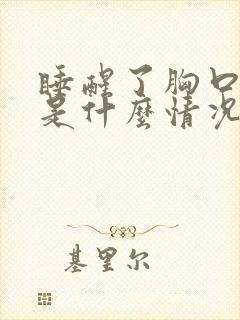 睡醒了胸口
是什麼情况
基里尔